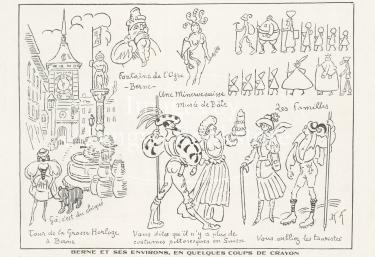 Fontaine de l'Ogre
- Berne -
Une Minerve suisse
Musée de Bâle
Les Familles
Ça, c'est du chique
Tour de la Grosse Horloge
à Berne
Vous dites qu'il n'y a plus de
costumes pittoresques en Suisse
Vous oubliez les touristes
BERNE ET SES ENVIRONS, EN QUELQUES COUPS DE CRAYON